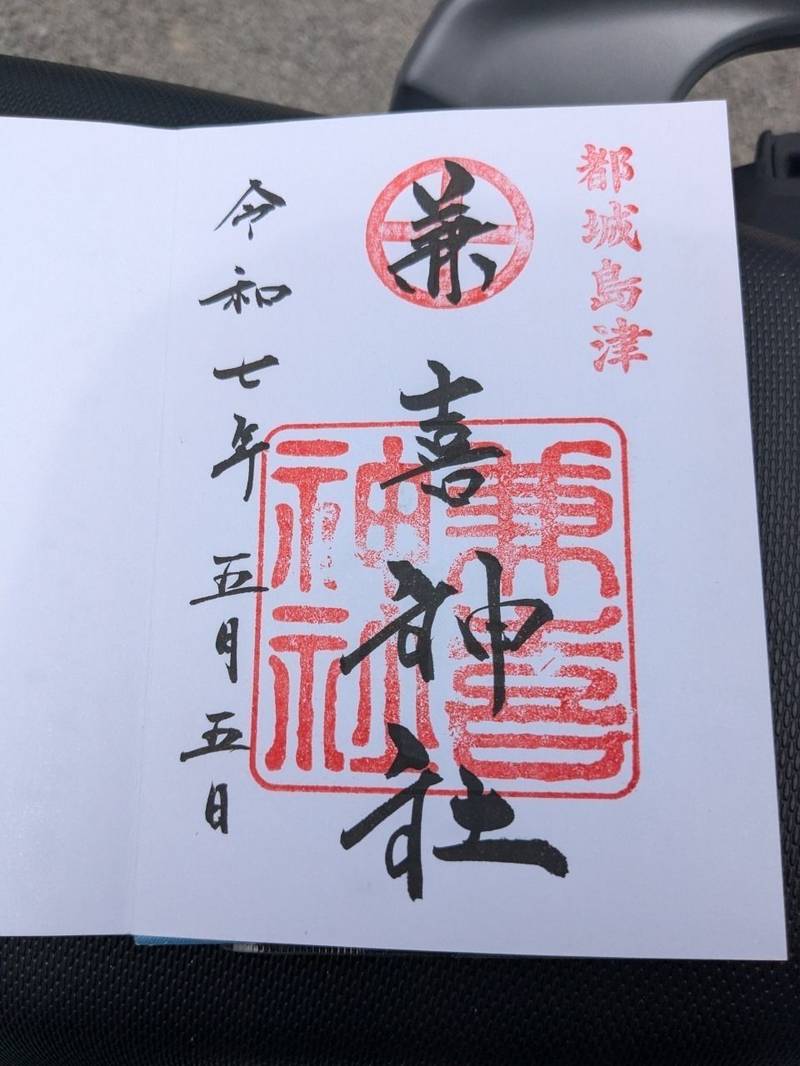 都城島津
兼喜神社
兼喜
神社
令和七年五月五日